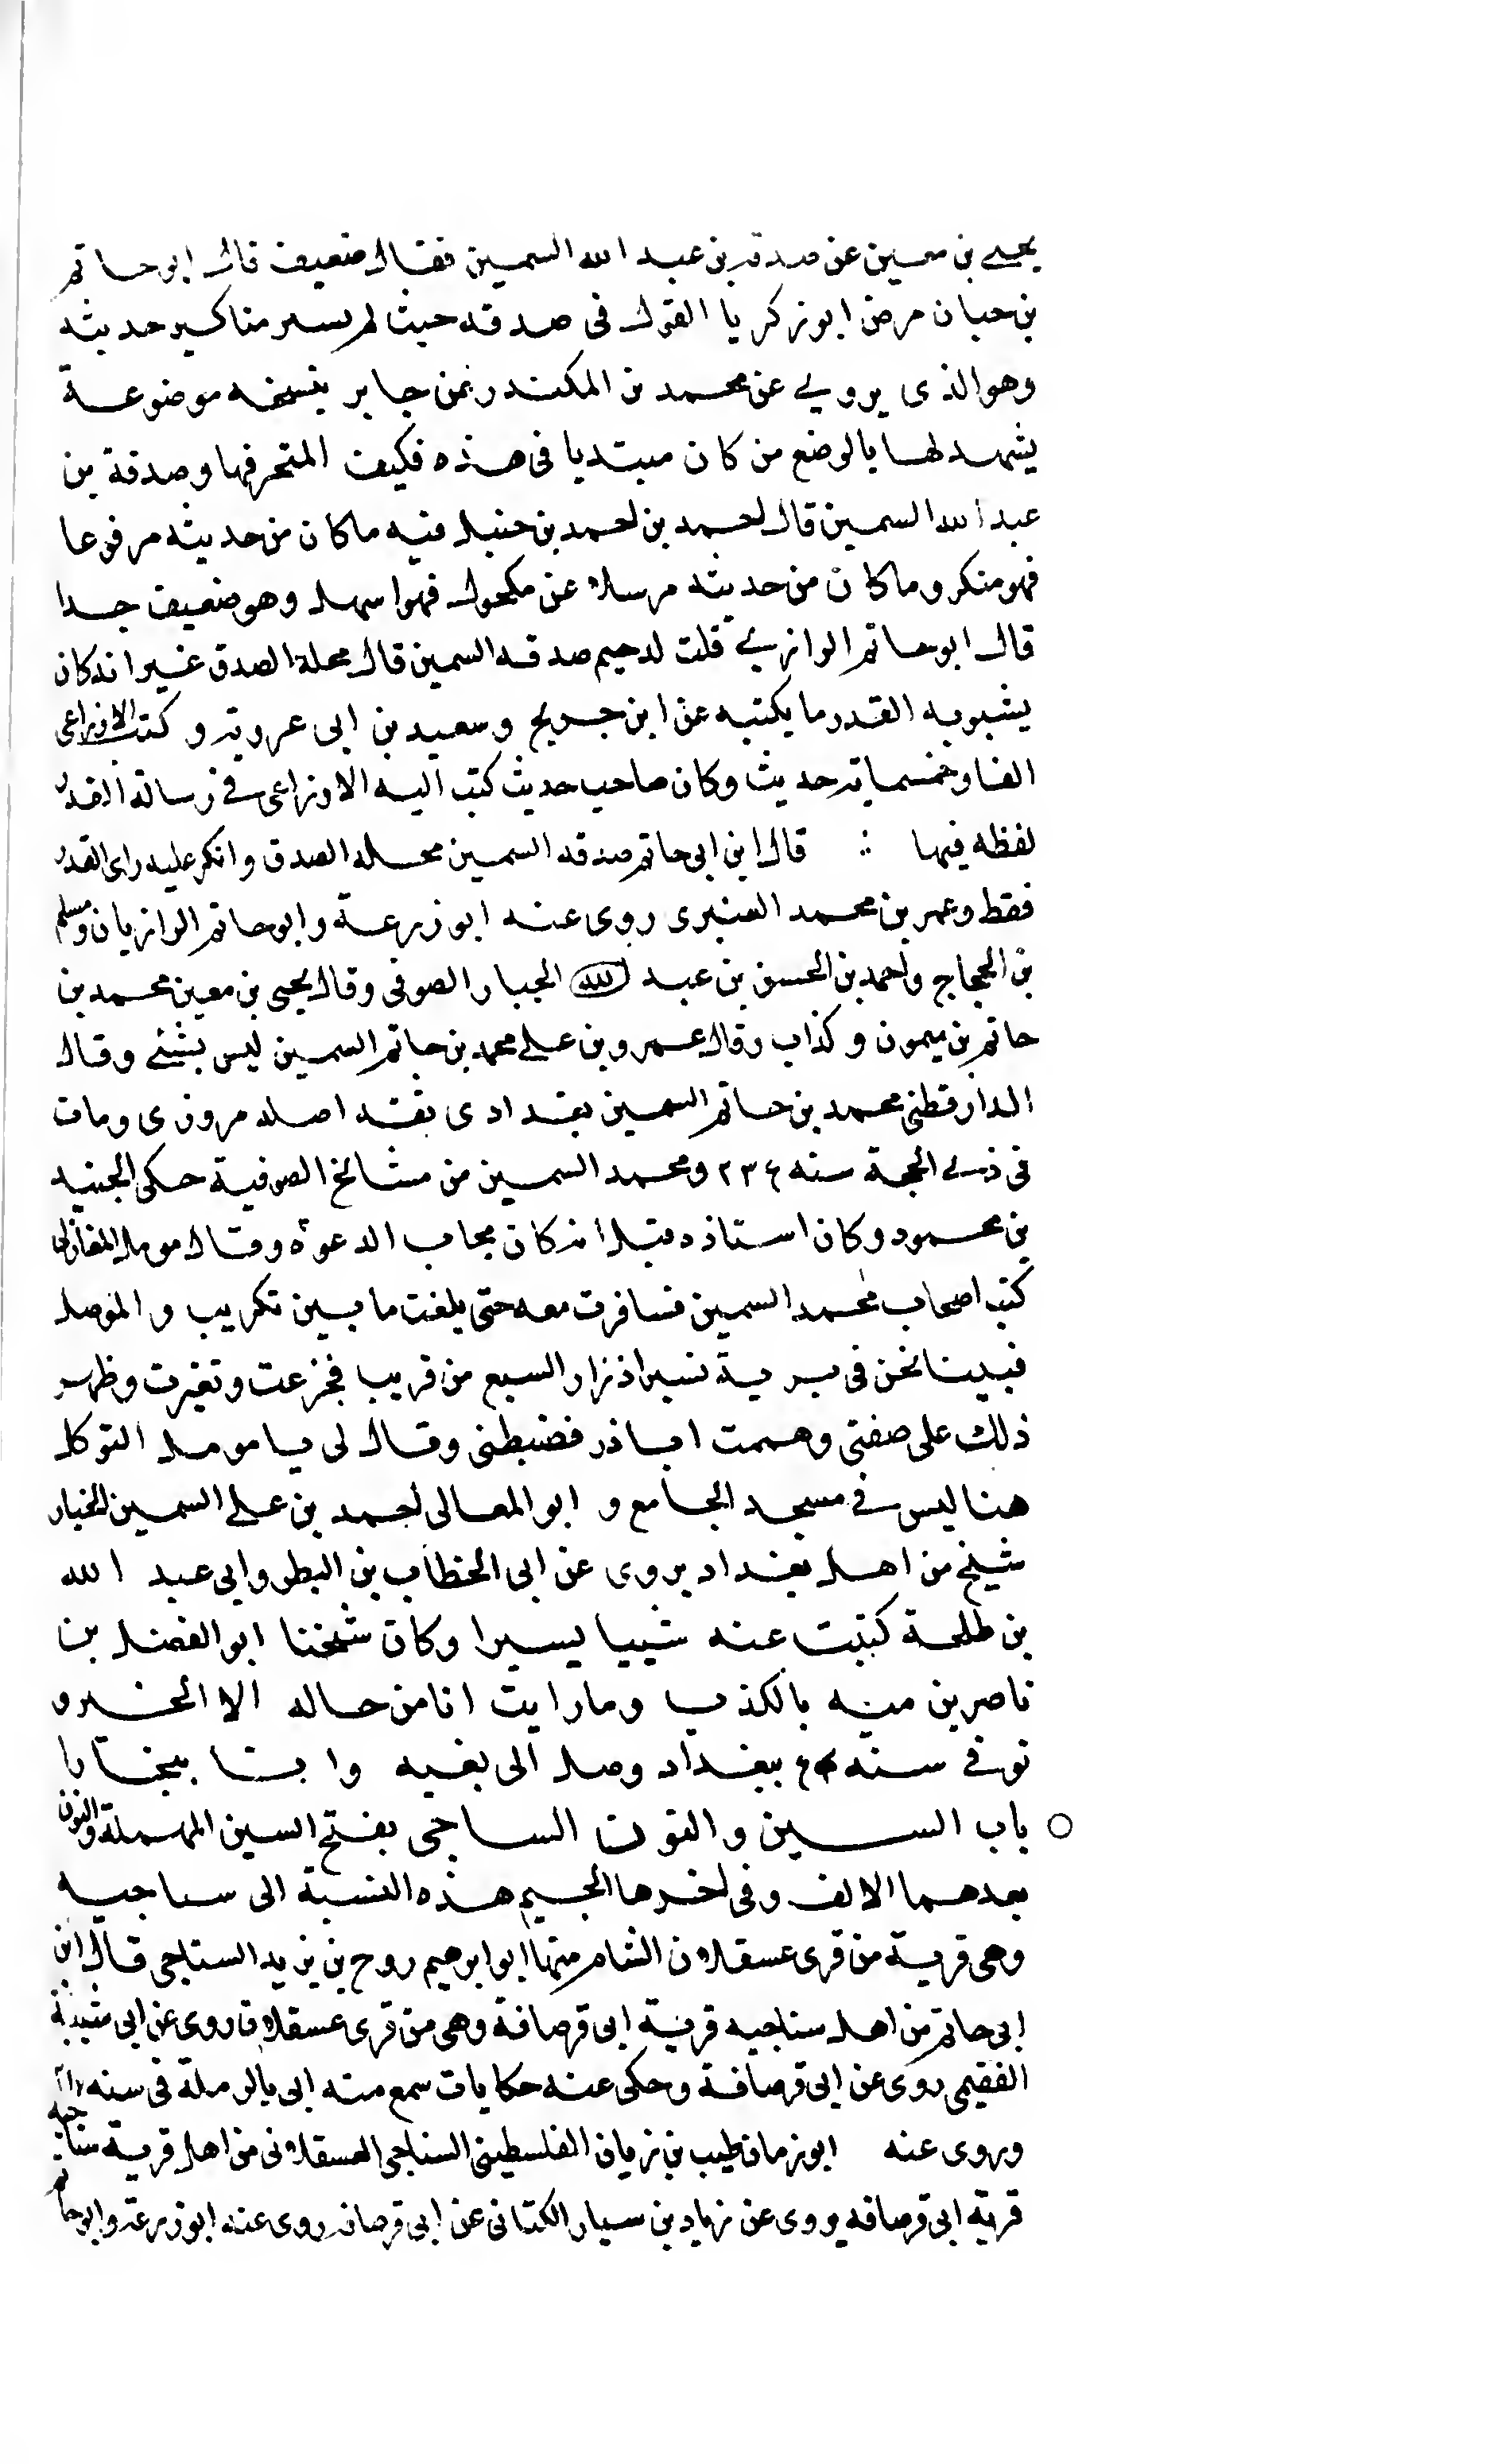 يحيى بن معين عن صدقة بن عبد الله السمين فقال ضعيف قال ابو حاتم
بن حبان مرض ابو زكريا القول فى صدقه حيث لم يسبر مناكير حديثه
وهو الذى يروي عن محمد بن المكندر عن جابر بنسخه موضوعة
يشهد لها بالوضع من كان مبتديا فى هذه فكيف المتحر فيها وصدقة بن
عبد الله السمين قال احمد بن احمد بن حنبل فيه ماكان من حديثه مرفوعا
فهو منكر وماكان من حديثه مرسلا عن مكحول فهو اسهل وهو ضعيف جدا
قال ابو حاتم الرازي قلت لدحيم صدقه السمين قال محلة الصدق غير انه كان
يشوبه القدر ما يكتبه عن ابن جريج وسعيد بن ابى عروبة و كتب الاوزاعى
الفا وخمسماية حديث وكان صاحب حديث كتب اليه الاوزاعى في رسالة القدر
لفظه فيها ؞ قال ابن ابى حاتم صدقه السمين محله الصدق وانكر عليه راى القدر
فقط وعمر بن محمد العنبرى روى عنه ابو زرعة وابو حاتم الرازيان ومسلم
بن الحجاج واحمد بن الحسن بن عبد الله الجبار الصوفى وقال يحيى بن معين محمد بن
حاتم بن ميمون و كذاب وقال عمرو بن على محمد بن حاتم السمين ليس بشئ وقال
الدارقطنى محمد بن حاتم السمين بغدادى ثقة اصله مروزى ومات
فى ذي الحجة سنه ٢٣٤ ومحمد السمين من مشائخ الصوفية حكى الجنيد
بن محمود وكان استاذه قبل انه كان مجاب الدعوة وقال مومل المغازلى
كنت اصحاب محمد السمين فسافرت معه حتى بلغت ما بين تكريب والموصل
فبينا نحن فى برية نسير اذ زار السبع من قريب فجزعت وتغيرت وظهر
ذلك على صفتى وهممت ابادر فضبطنى وقال لى يا مومل التوكل
هنا ليس في مسجد الجامع و ابو المعالى احمد بن على السمين الخباز
شيخ من اهل بغداد يروى عن ابى الخطاب بن البطر وابى عبد الله
بن طلحة كتبت عنه شييا يسيرا وكان شيخنا ابو الفضل بن
ناصر بن ميه بالكذب ومارايت انا من حاله الا الخير و
توفي سنه ببغداد وصل الى بغيه وابنا بيختايا
باب السين والنون الساجى بفتح السين المهملة والنون
بعدهما الالف وفى اخرها الجيم هذه النسبة الى سناجيه
وهى قرية من قرى عسقلان الشام منها ابو ابرهيم روح بن يزيد السناجى قال ابن
ابى حاتم من اهل سناجيه قرية ابى قرصافة وهى من قرى عسقلان روى عن ابى شيبة
الفقيمى روى عن ابى قرصافة وحكى عنه حكايات سمع منه ابى بالرملة فى سنه
وروى عنه ابو زمان طيب بن زيان الفلسطينى السناجى العسقلانى من اهل قرية سناجيه
قرية ابى قرصافه يروى عن زياد بن سيار الكنانى عن ابى قرصافه روى عنه ابو زرعة وابو حاتم